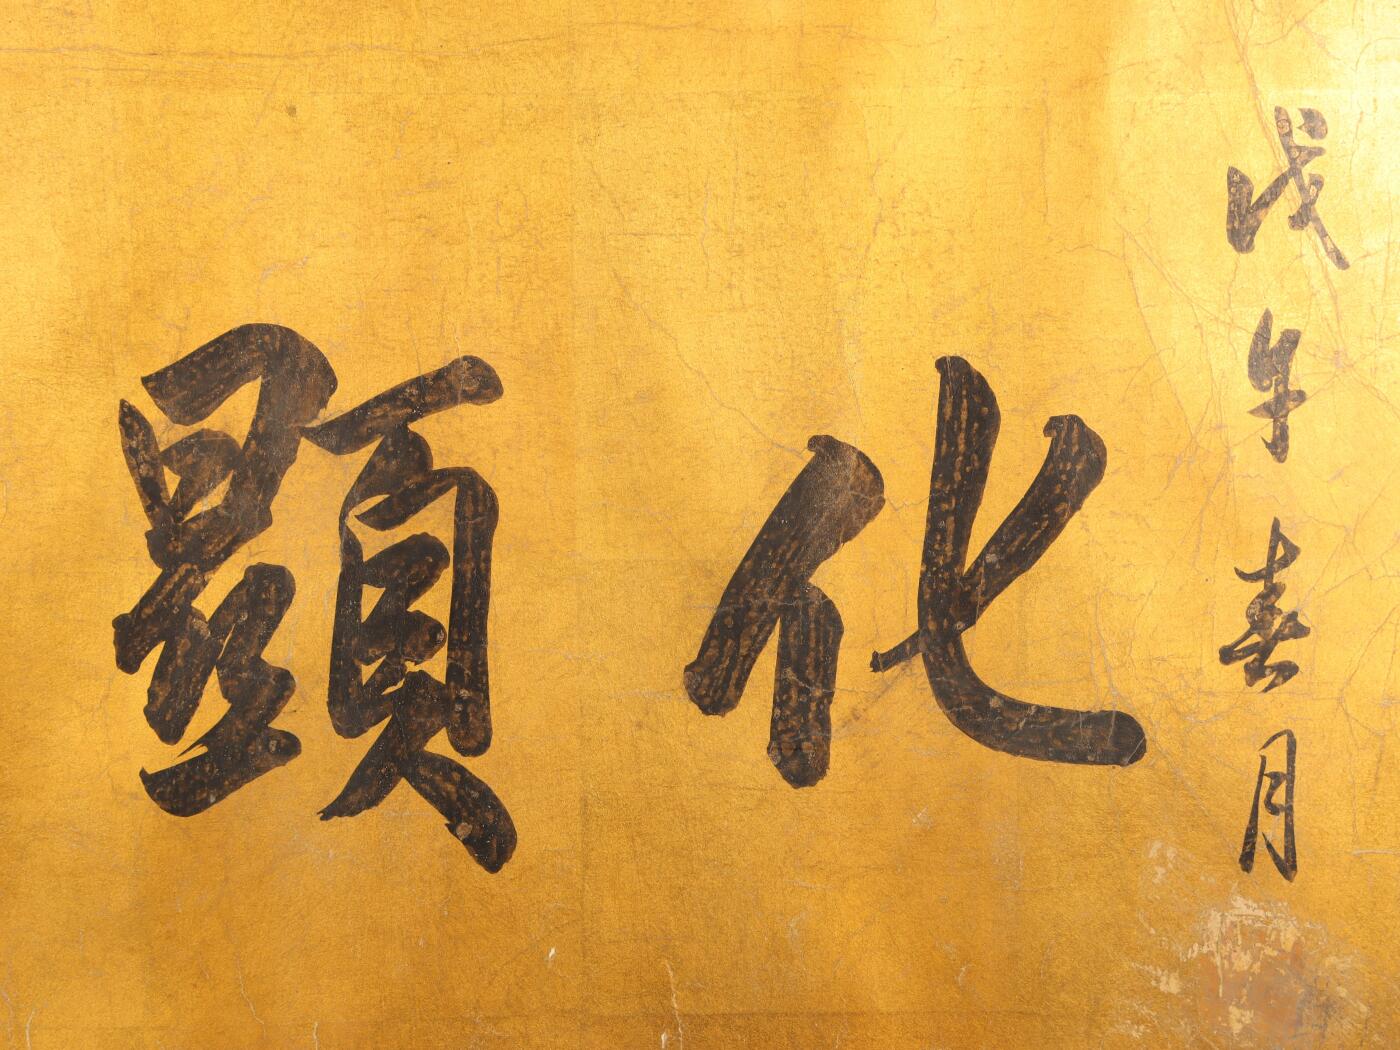 戊午春月
化顯